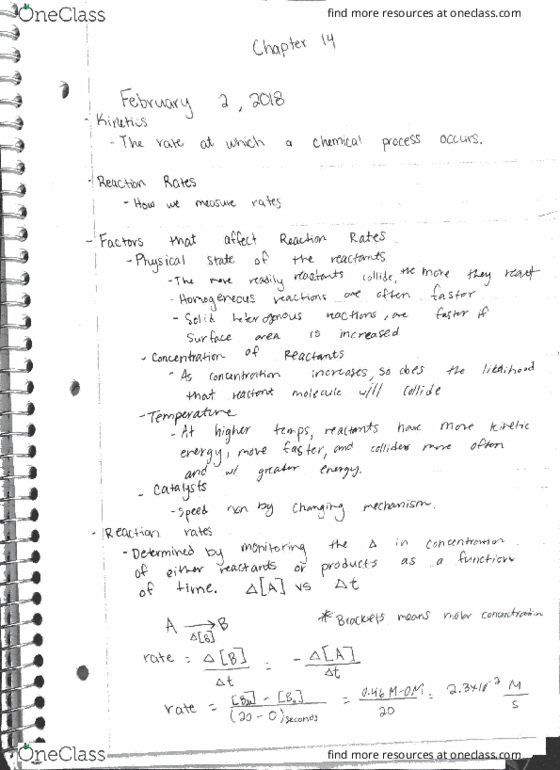 OneClass
find more resources at oneclass.com
Chapter 14
February 2, 2018
- Kinetics
- The rate at which a chemical process occurs.
- Reaction Rates
- How we measure rates
- Factors that affect Reaction Rates
- Physical state of the reactants
- The more readily reactants collide, the more they react
- Homogeneous reactions are often faster
- Solid heterogenous reactions, are faster if
surface area is increased
- Concentration of Reactants
- As concentration increases, so does the likelihood
that reactant molecule will collide
- Temperature
- At higher temps, reactants have more kinetic
energy, move faster, and collides more often
and w/ greater energy.
- Catalysts
- Speed rxn by changing mechanism.
- Reaction rates
- Determined by monitoring the Δ in concentration
of either reactants or products as a function
of time. Δ[A] vs Δt
A → B
Δ[B]
* Brackets means molar concentration
rate = Δ[B] / Δt = - Δ[A] / Δt
rate = [B] - [B] / (20 - 0) seconds = 0.46 M - 0 M / 20 = 2.3x10⁻² M / s
OneClass
find more resources at oneclass.com